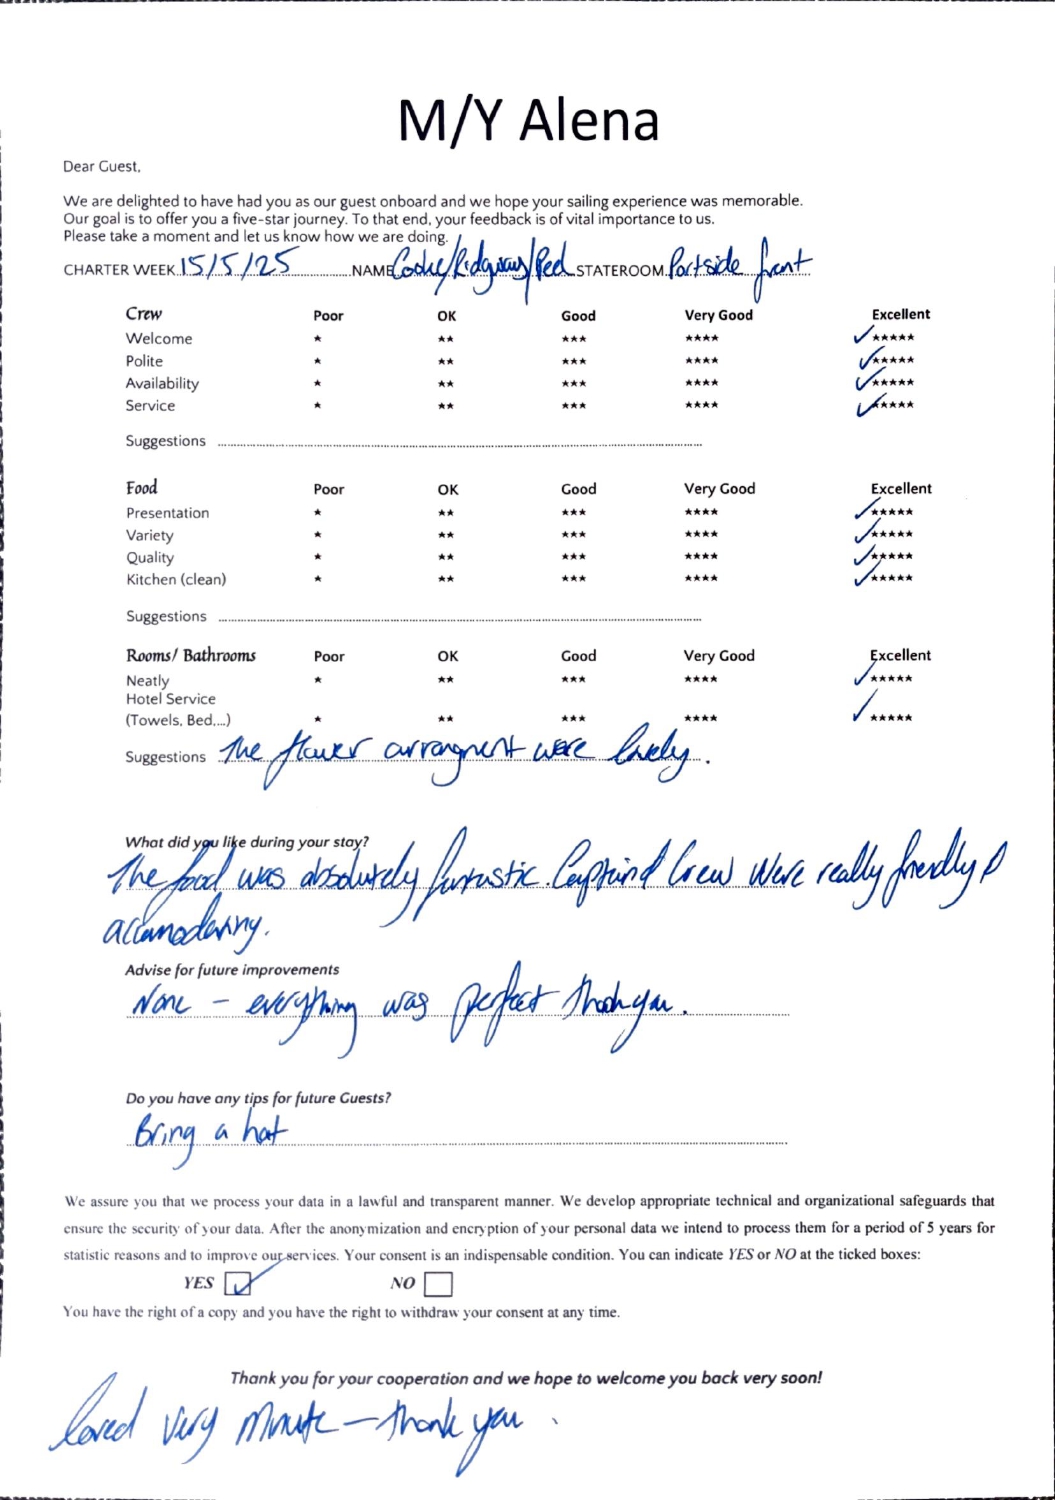 M/Y Alena
Dear Guest,
We are delighted to have had you as our guest onboard and we hope your sailing experience was memorable.
Our goal is to offer you a five-star journey. To that end, your feedback is of vital importance to us.
Please take a moment and let us know how we are doing.
CHARTER WEEK 15/5/25 NAME /Ridgway/ STATEROOM Portside front
Crew Poor OK Good Very Good Excellent
Welcome * ** *** **** ✓*****
Polite * ** *** **** ✓*****
Availability * ** *** **** ✓*****
Service * ** *** **** ✓*****
Suggestions
Food Poor OK Good Very Good Excellent
Presentation * ** *** **** ✓*****
Variety * ** *** **** ✓*****
Quality * ** *** **** ✓*****
Kitchen (clean) * ** *** **** ✓*****
Suggestions
Rooms/ Bathrooms Poor OK Good Very Good Excellent
Neatly * ** *** **** ✓*****
Hotel Service
(Towels, Bed,...) * ** *** **** ✓*****
Suggestions The flower arrangment were lovely.
What did you like during your stay?
The food was absolutely fantastic. Captain & Crew were really friendly &
accamodating.
Advise for future improvements
None - everything was perfect thank you.
Do you have any tips for future Guests?
Bring a hat
We assure you that we process your data in a lawful and transparent manner. We develop appropriate technical and organizational safeguards that
ensure the security of your data. After the anonymization and encryption of your personal data we intend to process them for a period of 5 years for
statistic reasons and to improve our services. Your consent is an indispensable condition. You can indicate YES or NO at the ticked boxes:
YES ✓ NO
You have the right of a copy and you have the right to withdraw your consent at any time.
Thank you for your cooperation and we hope to welcome you back very soon!
loved very minute - thank you.